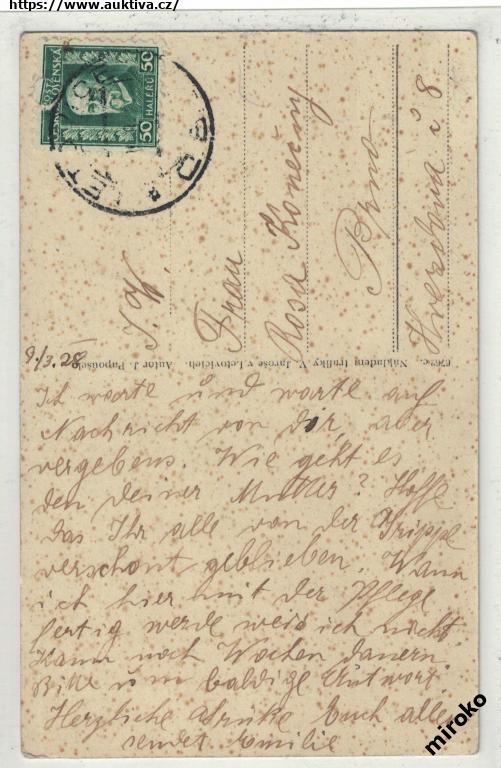 https://www.auktiva.cz/
50 HALERU 50
Frau
Rosa Konečny
Brno
č 8
6762c. Nákladem trafiky V. Jaroše v Letovicích. Autor J.
9./3. 28
Ich warte und warte auf
Nachricht von dir, aber
vergebens. Wie geht es
den deiner Mutter? Hoffe
das Ihr alle von der Grippe
verschont geblieben. Wann
ich hier mit der Pflege
fertig werde weis ich nicht
Kann noch Wochen dauern
Bitte um baldige Antwort
Herzliche Grüße Euch allen
sendet Emilie
miroko